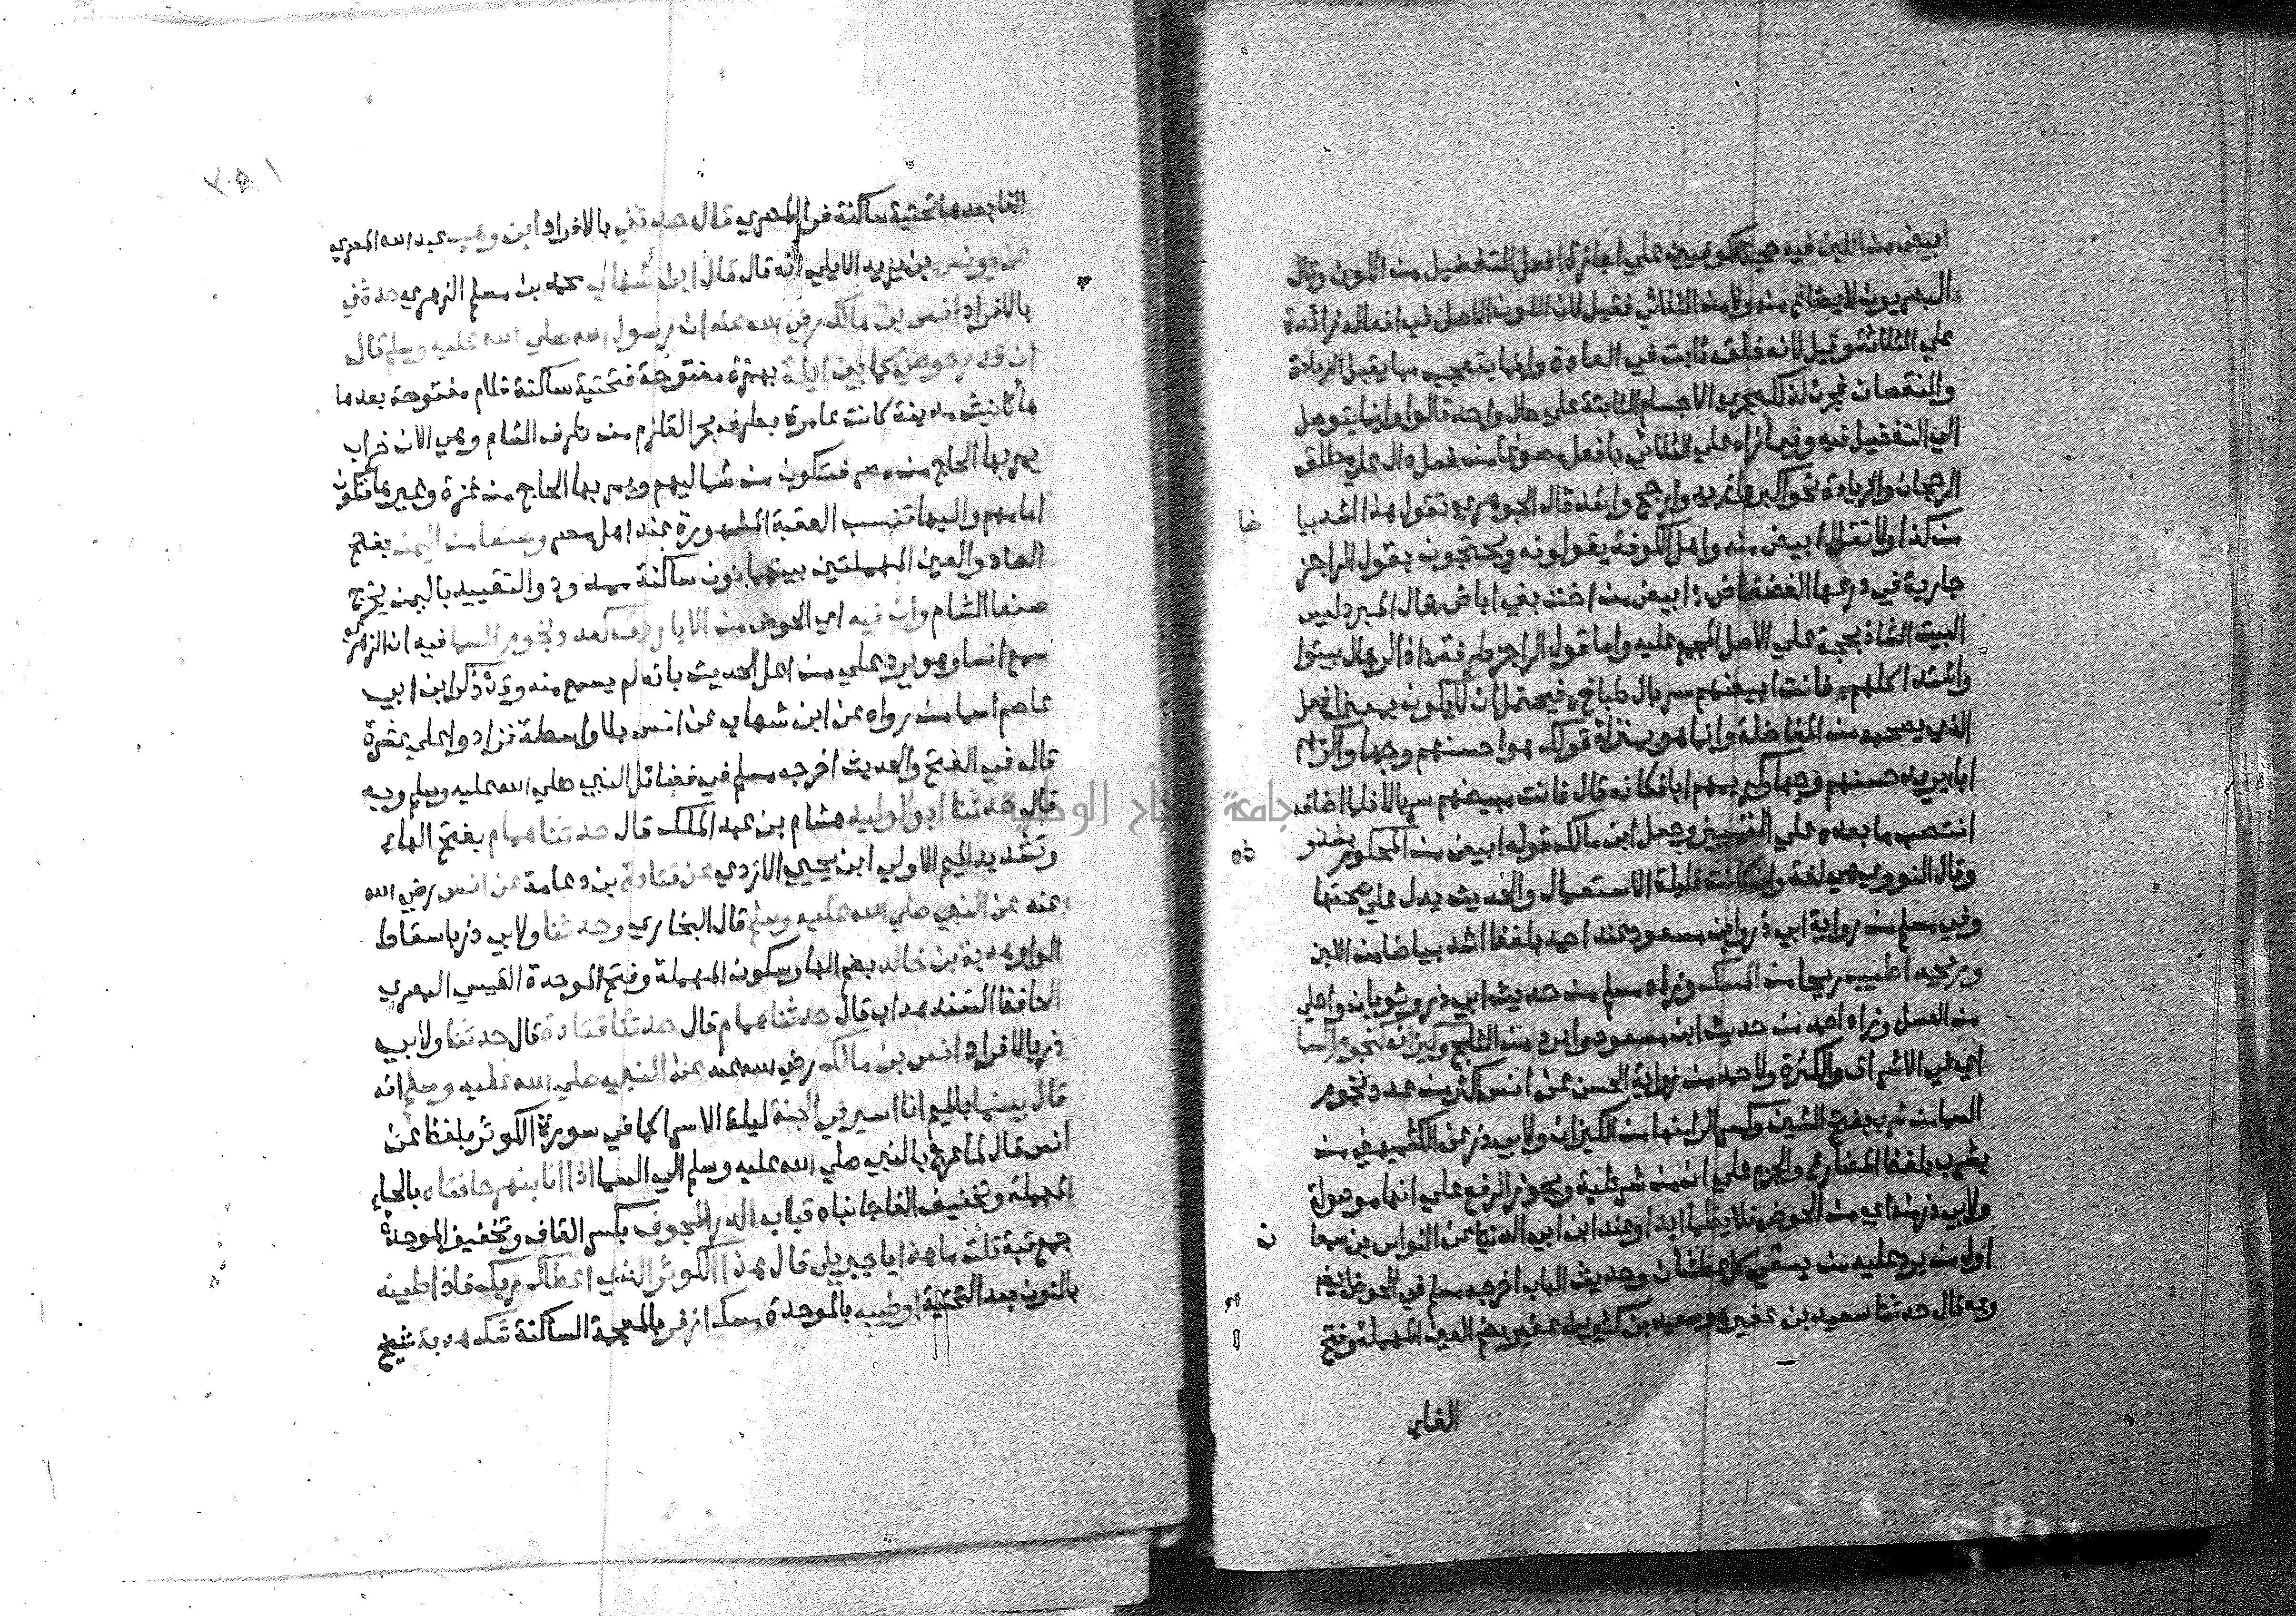 ابيض من اللبن فيه حجة للكوفيين علي اجازة افعل التفضيل من اللون وقال
البصريون لا يصاغ منه ولا من الثلاثي فقيل لان اللون الاصل في افعاله زائدة
علي الثلاثة وقيل لانه خلق ثابت في العادة وانما يتعجب مما يقبل الزيادة
والنقصان فجرت لذلك مجري الاجسام الثابتة علي حال واحد قالوا وانما يتوصل
الي التفضيل فيه وفيما زاد علي الثلاثي بافعل مصوغا من فعل دال علي مطلق
الرجحان والزيادة نحو اكبر وازيد وارجح واشد قال الجوهري تقول هذا اشد بيا ضا
من كذا ولا تقول ابيض منه واهل الكوفة يقولونه ويحتجون بقول الراجز
جارية في درعها الفضفاض ابيض من اخت بني اباض قال المبرد ليس
البيت الشاذ بحجة علي الاصل المجمع عليه واما قول الراجز طرفة اذا الرجال شتوا
واشتد اكلهم فانت ابيضهم سربال طباخ فيحتمل ان لا يكون بمعني افعل
الذي يصحبه من المفاضلة وانما هو بمنزلة قولك هو احسنهم وجها واكرمهم
ابا يريد حسنهم وجها وكريمهم ابا فكانه قال فانت مبيضهم سربالا فلما اضافه
انتصب ما بعده علي التمييز وجعل ابن مالك قوله ابيض من المحكوم بشذو ذه
وقال النووي هي لغة وان كانت قليلة الاستعمال والحديث يدل علي صحتها
وفي مسلم من رواية ابي ذر وابن مسعود عند احمد بلفظ اشد بياضا من اللبن
وريحه اطيب ريحا من المسك وزاد مسلم من حديث ابي ذر وثوبان واحلي
من العسل وزاد احمد من حديث ابن مسعود وابرد من الثلج وكيزانه كنجوم السما
اي في الاشراق والكثرة ولاحمد من رواية الحسن عن انس اكثر من عدد نجوم
السما من شرب بفتح الشين وكسر الرا منها من الكيزان ولابي ذر عن الكشميهني من
يشرب بلفظ المضارع والجزم علي ان من شرطية ويجوز الرفع علي انها موصولة
ولابي ذر منه اي من الحوض فلا يظما ابدا وعند ابن ابي الدنيا عن النواس بن سمعا ن
اول من يرد عليه من يسقي كل عطشان وحديث الباب اخرجه مسلم في الحوض ايضا
وبه قال حدثنا سعيد بن عفير هو سعيد بن كثير بن عفير بضم العين المهملة وفتح
الفاء
الفا بعدها تحتية ساكنة فرا المصري قال حدثني بالافراد ابن وهب عبد الله المصري
عن يونس بن يزيد الايلي انه قال قال ابن شهاب محمد بن مسلم الزهري حدثني
بالافراد انس بن مالك رضي الله عنه ان رسول الله صلي الله عليه وسلم قال
ان قدر حوضي كما بين ايلة بهمزة مفتوحة فتحتية ساكنة فلام مفتوحة بعدها
ها تانيث مدينة كانت عامرة بطرف بحر القلزم من طرف الشام وهي الان خراب
يمر بها الحاج من مصر فتكون من شماليهم ويمر بها الحاج من غزة وغيرها فتكون
امامهم واليها تنسب العقبة المشهورة عند اهل مصر وصنعا من اليمن بفتح
الصاد والعين المهملتين بينهما نون ساكنة ممدود والتقييد باليمن يخرج
صنعا الشام وان فيه اي الحوض من الاباريق كعدد نجوم السما فيه ان الزهري
سمع انسا وهو يرد علي من اعل الحديث بانه لم يسمع منه وقد ذكر ابن ابي
عاصم اسما من رواه عن ابن شهاب عن انس بلا واسطة فزادوا علي عشرة
قاله في الفتح والحديث اخرجه مسلم في فضائل النبي صلي الله عليه وسلم وبه
قال حدثنا ابو الوليد هشام بن عبد الملك قال حدثنا همام بفتح الهاء
وتشديد الميم الاولي ابن يحيي الازدي عن قتادة بن دعامة عن انس رضي الله
عنه عن النبي صلي الله عليه وسلم قال البخاري وحدثنا ولابي ذر باسقاط
الواو هدبة بن خالد بضم الها وسكون المهملة وفتح الموحدة القيسي البصري
الحافظ المسند هداب قال حدثنا همام قال حدثنا قتادة قال حدثنا ولابي
ذر بالافراد انس بن مالك رضي الله عنه عن النبي صلي الله عليه وسلم انه
قال بينما بالميم انا اسير في الجنة ليلة الاسرا كما في سورة الكوثر بلفظ عن
انس قال لما عرج بالنبي صلي الله عليه وسلم الي السما اذا انا بنهر حافتاه بالحاء
المهملة وتخفيف الفا جانباه قباب الدر المجوف بكسر القاف وتخفيف الموحدة
جمع قبة قلت ما هذا يا جبريل قال هذا الكوثر الذي اعطاك ربك فاذا طينه
بالنون بعد التحتية او طيبه بالموحدة مسك اذفر بالمعجمة الساكنة شك هدبة شيخ